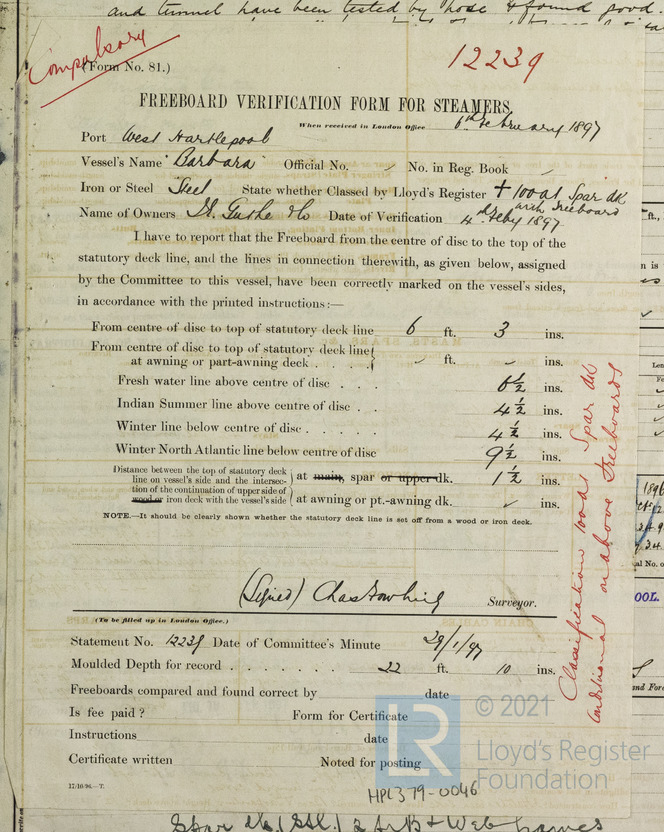 and tunnel have been tested by hose & found good.
Compulsory
(Form No. 81.)
12239
FREEBOARD VERIFICATION FORM FOR STEAMERS.
When received in London Office 6th February 1897
Port West Hartlepool
Vessel's Name "Barbara" Official No. No. in Reg. Book
Iron or Steel Steel State whether Classed by Lloyd's Register + 100A1 Spar dk
with Freeboard
Name of Owners Date of Verification 4th Feby 1897
I have to report that the Freeboard from the centre of disc to the top of the
statutory deck line, and the lines in connection therewith, as given below, assigned
by the Committee to this vessel, have been correctly marked on the vessel's sides,
in accordance with the printed instructions:—
From centre of disc to top of statutory deck line 6 ft. 3 ins.
From centre of disc to top of statutory deck line
at awning or part-awning deck . ✓ ft. ✓ ins.
Fresh water line above centre of disc . . . 6½ ins.
Indian Summer line above centre of disc . . 4½ ins.
Winter line below centre of disc . . . . 4½ ins.
Winter North Atlantic line below centre of disc 9½ ins.
Distance between the top of statutory deck
line on vessel's side and the intersec- at main, spar or upper dk. 1½ ins.
tion of the continuation of upper side of
wood or iron deck with the vessel's side at awning or pt.-awning dk. ✓ ins.
NOTE.—It should be clearly shown whether the statutory deck line is set off from a wood or iron deck.
(Signed) Surveyor.
(To be filled up in London Office.)
Statement No. 12239 Date of Committee's Minute 29/1/97
Moulded Depth for record . . . . . . . 22 ft. 10 ins.
Freeboards compared and found correct by date
Is fee paid? Form for Certificate
Instructions date
Certificate written Noted for posting
17/10/96.—T.
Classification 100A1 Spar dk
Conditional on above Freeboards
© 2021
LR
Lloyd's Register
Foundation
HPL379-0046
Spar dk (Stl.) 2 & Web frames